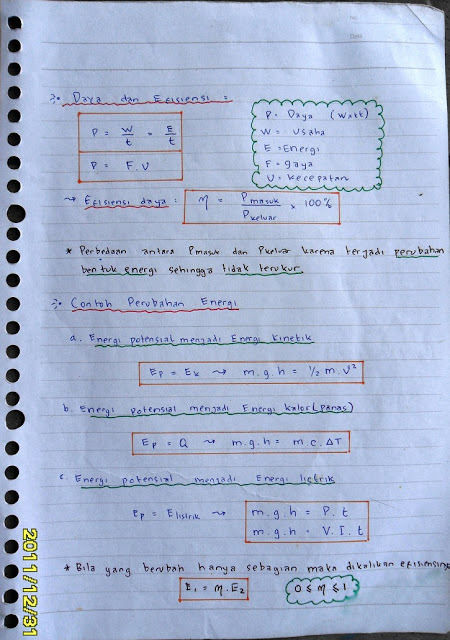 No.
Date
Daya dan Efisiensi =
P = W/t = E/t
P = F.V
P = Daya (Watt)
W = Usaha
E = Energi
F = gaya
V = kecepatan
→ Efisiensi daya : η = Pmasuk/Pkeluar × 100%
* Perbedaan antara Pmasuk dan Pkeluar karena terjadi perubahan
bentuk energi sehingga tidak terukur.
Contoh Perubahan Energi
a. Energi potensial menjadi Energi kinetik
Ep = Ek → m.g.h = 1/2 m.v²
b. Energi potensial menjadi Energi kalor (panas)
Ep = Q → m.g.h = m.c.ΔT
c. Energi potensial menjadi Energi listrik
Ep = Elistrik → m.g.h = P.t
m.g.h = V.I.t
* Bila yang berubah hanya sebagian maka dikalikan efisiensinya
E₁ = η.E₂
0 ≤ η ≤ 1
2011/12/31